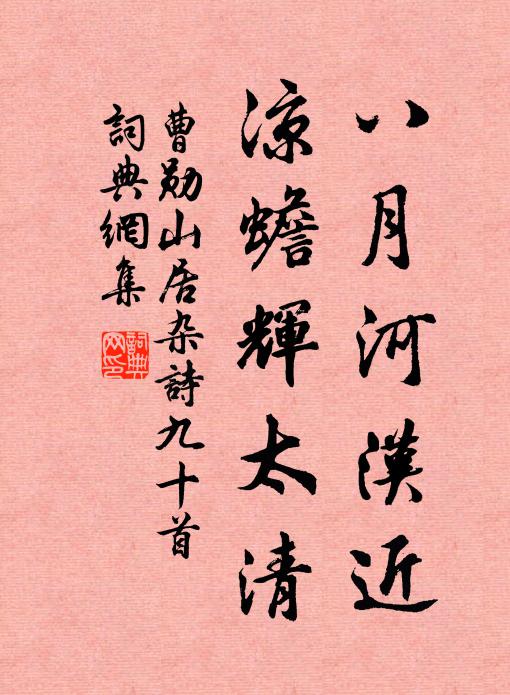 八月河漢近
涼蟾輝太清
曹勛山居杂詩九十首
詞典網集
詞典網印